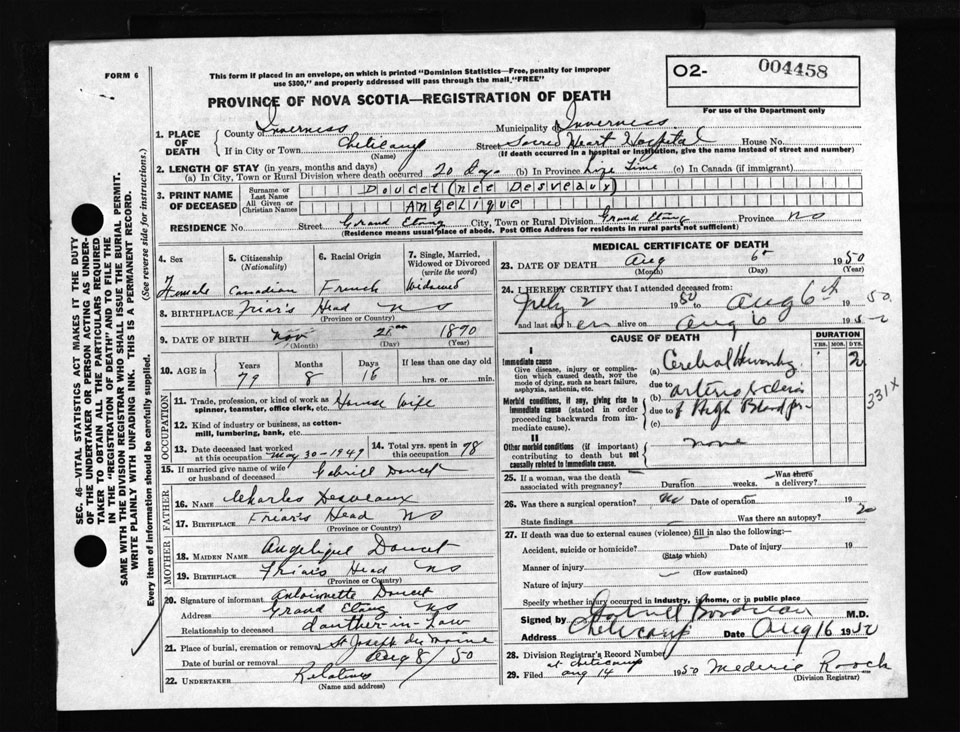 FORM 6
This form if placed in an envelope, on which is printed "Dominion Statistics—Free, penalty for improper
use $300," and properly addressed will pass through the mail "FREE"
O2- 004458
For use of the Department only
PROVINCE OF NOVA SCOTIA—REGISTRATION OF DEATH
1. PLACE OF DEATH
County of Inverness Municipality of Inverness
If in City or Town Cheticamp (Name) Street Sacred Heart Hospital House No.
(If death occurred in a hospital or institution, give the name instead of street and number)
2. LENGTH OF STAY (in years, months and days)
(a) In City, Town or Rural Division where death occurred 20 days (b) In Province Life Time (c) In Canada (if immigrant)
3. PRINT NAME OF DECEASED
Surname or Last Name Doucet (nee Desveaux)
All Given or Christian Names Angelique
RESIDENCE No. Street Grand Etang City, Town or Rural Division Grand Etang Province NS
(Residence means usual place of abode. Post Office Address for residents in rural parts not sufficient)
4. Sex Female
5. Citizenship (Nationality) Canadian
6. Racial Origin French
7. Single, Married, Widowed or Divorced (write the word) Widowed
8. BIRTHPLACE Friar's Head NS
(Province or Country)
9. DATE OF BIRTH Nov (Month) (Day) 1870 (Year)
10. AGE in Years 79 Months 8 Days 16 If less than one day old
hrs. or min.
OCCUPATION
11. Trade, profession, or kind of work as spinner, teamster, office clerk, etc. House wife
12. Kind of industry or business, as cotton-mill, lumbering, bank, etc.
13. Date deceased last worked at this occupation May 30-1949
14. Total yrs. spent in this occupation 78
15. If married give name of wife or husband of deceased Gabriel Doucet
FATHER
16. NAME Charles Desveaux
17. BIRTHPLACE Friar's Head NS
(Province or Country)
MOTHER
18. MAIDEN NAME Angelique Doucet
19. BIRTHPLACE Friar's Head NS
(Province or Country)
20. Signature of informant Antoinette Doucet
Address Grand Etang NS
Relationship to deceased dauther-in-Law
21. Place of burial, cremation or removal St Joseph du Moine
Date of burial or removal Aug 8/50
22. UNDERTAKER Relatives
(Name and address)
MEDICAL CERTIFICATE OF DEATH
23. DATE OF DEATH Aug (Month) 6 (Day) 1950 (Year)
24. I HEREBY CERTIFY that I attended deceased from:
July 2 1950 to Aug 6th 1950
and last saw h er alive on Aug 6 1950
CAUSE OF DEATH
DURATION
YRS. MOS. DYS.
I
Immediate cause
Give disease, injury or complication which caused death, NOT the mode of dying, such as heart failure, asphyxia, asthenia, etc.
(a) Cerebral 2
due to
Morbid conditions, if any, giving rise to immediate cause (stated in order proceeding backwards from immediate cause).
(b)
due to
(c)
331X
II
Other morbid conditions (if important) contributing to death but not causally related to immediate cause.
none
25. If a woman, was the death associated with pregnancy? Duration weeks. Was there a delivery?
26. Was there a surgical operation? no Date of operation 19
State findings Was there an autopsy? no
27. If death was due to external causes (violence) fill in also the following:
Accident, suicide or homicide? (State which) Date of injury 19
Manner of injury (How sustained)
Nature of injury
Specify whether injury occurred in industry, in home, or in public place
Signed by M.D.
Address Cheticamp Date Aug 16 1950
28. Division Registrar's Record Number
at Cheticamp
29. Filed Aug 14 1950 Mederic Roach
(Division Registrar)
SEC. 46—VITAL STATISTICS ACT MAKES IT THE DUTY
OF THE UNDERTAKER OR PERSON ACTING AS UNDER-
TAKER TO OBTAIN ALL THE PARTICULARS REQUIRED
IN THE "REGISTRATION OF DEATH" AND TO FILE THE
SAME WITH THE DIVISION REGISTRAR WHO SHALL ISSUE THE BURIAL PERMIT.
WRITE PLAINLY WITH UNFADING INK. THIS IS A PERMANENT RECORD.
Every item of information should be carefully supplied. (See reverse side for instructions.)